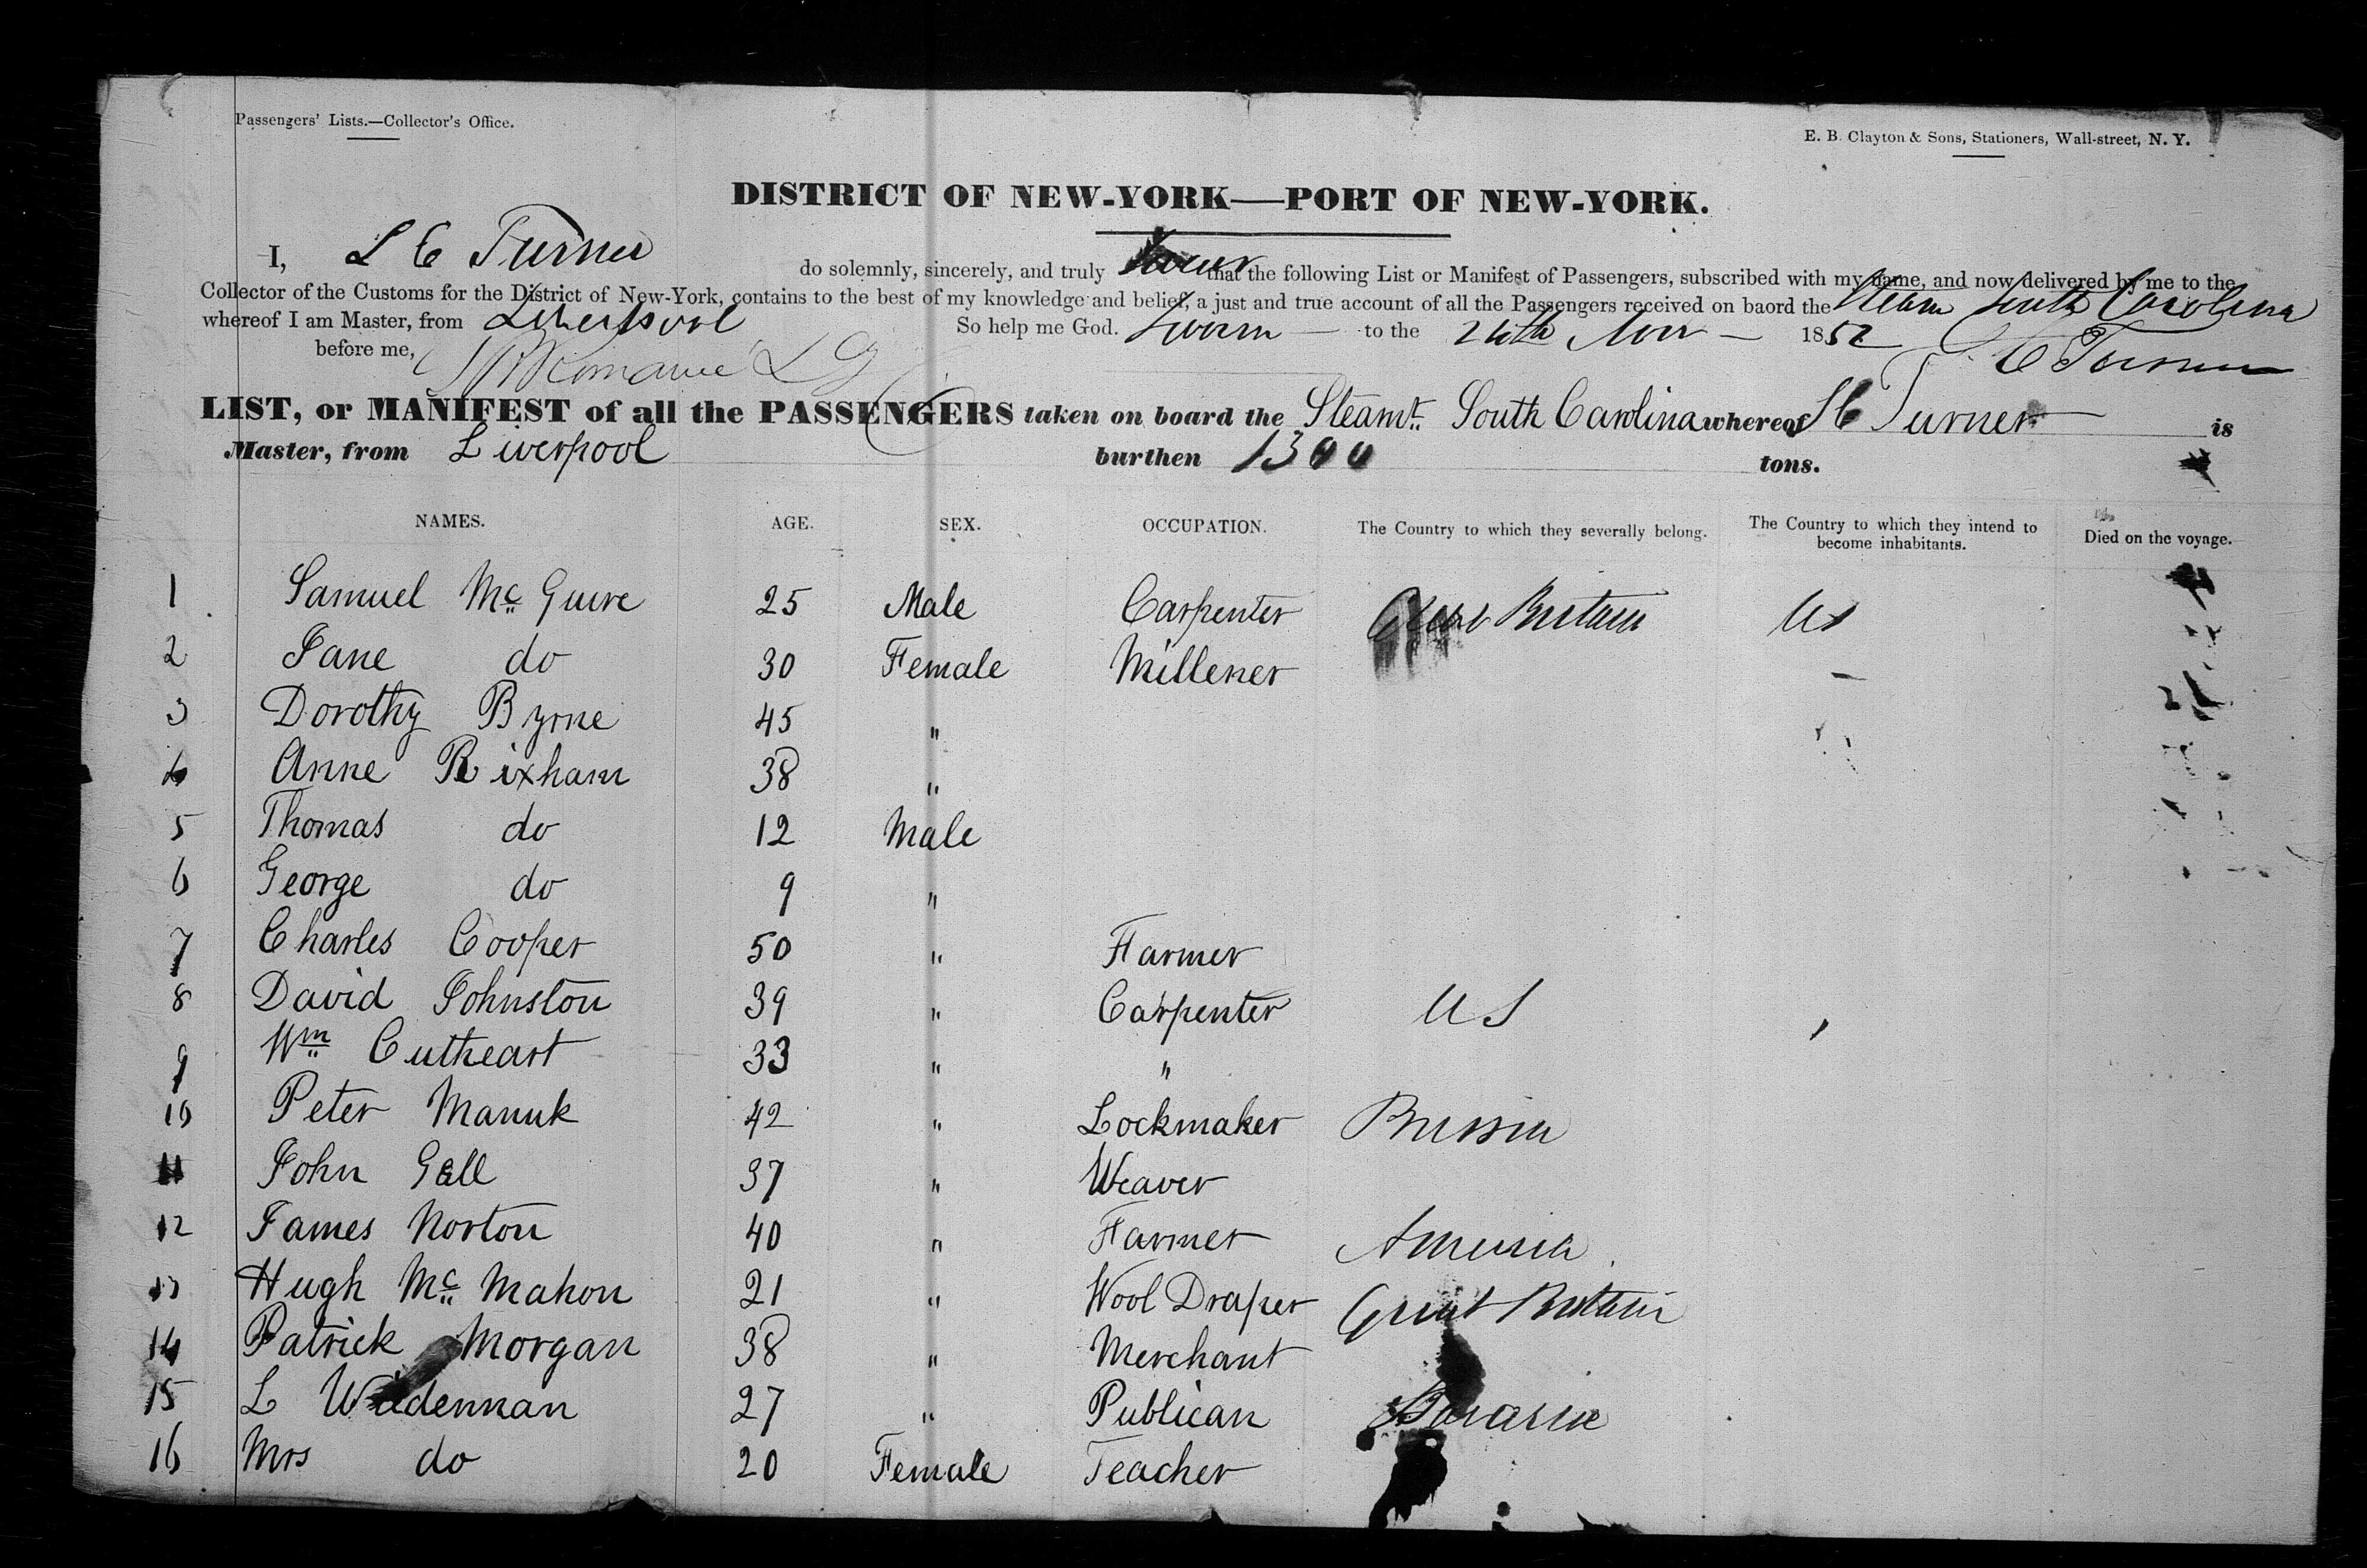 Passengers' Lists.—Collector's Office.
E. B. Clayton & Sons, Stationers, Wall-street, N. Y.
DISTRICT OF NEW-YORK—PORT OF NEW-YORK.
I, L C Turner do solemnly, sincerely, and truly swear that the following List or Manifest of Passengers, subscribed with my name, and now delivered by me to the
Collector of the Customs for the District of New-York, contains to the best of my knowledge and belief, a just and true account of all the Passengers received on baord the Steam South Carolina
whereof I am Master, from Liverpool So help me God. Sworn to the 26th Nov 1852 C Turner
before me,
LIST, or MANIFEST of all the PASSENGERS taken on board the Steamr. South Carolina whereof L C Turner is
Master, from Liverpool burthen 1300 tons.
NAMES. AGE. SEX. OCCUPATION. The Country to which they severally belong. The Country to which they intend to become inhabitants. Died on the voyage.
1 Samuel Mc Guire 25 Male Carpenter Great Britain US
2 Jane do 30 Female Millener —
3 Dorothy Byrne 45 "
4 Anne Rixham 38 "
5 Thomas do 12 Male
6 George do 9 "
7 Charles Cooper 50 " Farmer
8 David Johnston 39 " Carpenter US
9 Wm Cutheart 33 " "
10 Peter Manuk 42 " Lockmaker Prussia
11 John Gall 37 " Weaver
12 James Norton 40 " Farmer America
13 Hugh Mc Mahon 21 " Wool Draper Great Britain
14 Patrick Morgan 38 " Merchant
15 L Widenman 27 " Publican Bavaria
16 Mrs do 20 Female Teacher